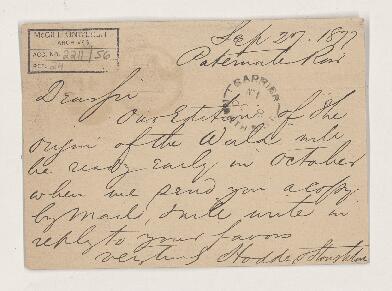 McGILL UNIVERSITY
ARCHIVES
ACC. NO. 2211/56
REF.
Sep 27. 1877
Paternoster Row
CARRIER
Dear Sir
Our Edition of The
Origin of the World will
be ready early in October
when we send you a copy
by Mail, & will write in
reply to your favors
very truly Hodder & Stoughton